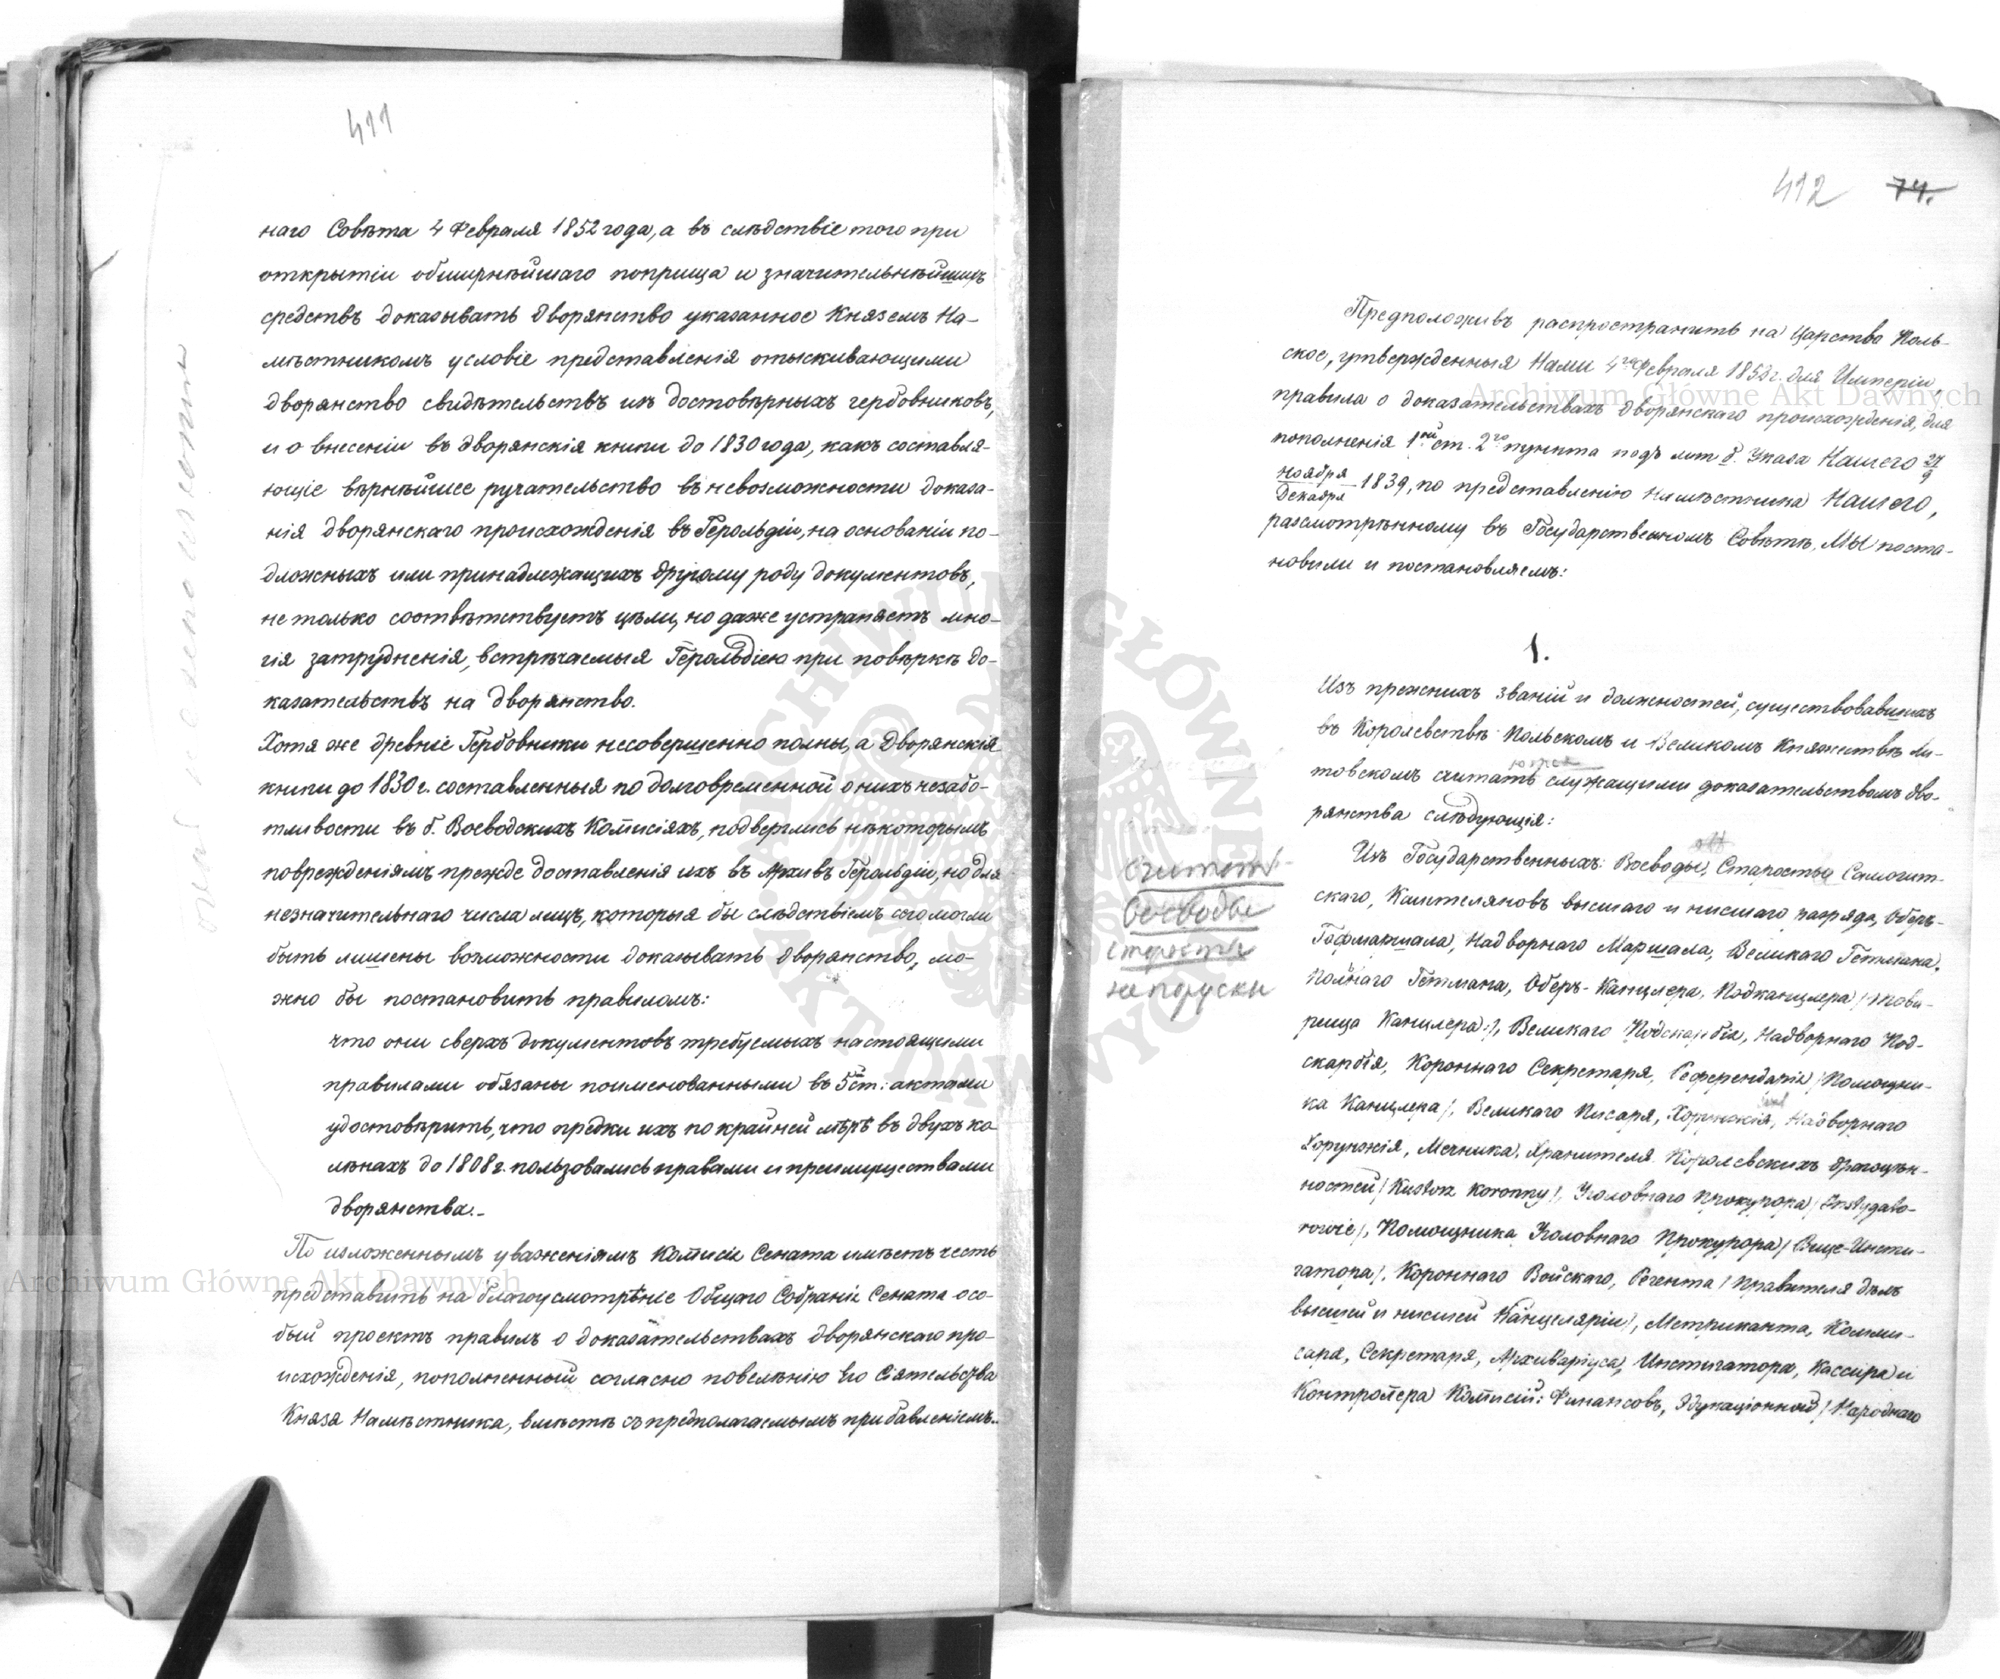 411
наго Совѣта 4 Февраля 1852 года, а въ слѣдствіе того при
открытіи обширнѣйшаго поприща и значительнѣйшихъ
средствъ доказывать дворянство указанное Княземъ На-
мѣстникомъ условіе представленія отыскивающими
дворянство свидѣтельствъ изъ достовѣрныхъ гербовниковъ,
и о внесеніи въ дворянскія книги до 1830 года, какъ составля-
ющіе вѣрнѣйшее ручательство въ невозможности доказа-
нія дворянскаго происхожденія въ Герольдіи, на основаніи по-
дложныхъ или принадлежащихъ другому роду документовъ,
не только соотвѣтствуетъ цѣли, но даже устраняетъ мно-
гія затрудненія, встрѣчаемыя Герольдіею при повѣркѣ до-
казательствъ на дворянство.
Хотя же древніе Гербовники несовершенно полны, а дворянскія
книги до 1830 г. составленныя по долговременной о нихъ незабо-
тливости въ б. Воеводскихъ Комисіяхъ, подверглись нѣкоторымъ
поврежденіямъ прежде доставленія ихъ въ Архивъ Герольдіи, но для
незначительнаго числа лицъ, которыя бы слѣдствіемъ сего могли
быть лишены возможности доказывать дворянство, мо-
жно бы постановить правиломъ:
что они сверхъ документовъ требуемыхъ настоящими
правилами обязаны поименованными въ 5 ст: актами
удостовѣрить, что предки ихъ по крайней мѣрѣ въ двухъ ко-
лѣнахъ до 1808 г. пользовались правами и преимуществами
дворянства.-
По изложеннымъ уваженіямъ Комисія Сената имѣетъ честь
представить на благоусмотрѣніе Общаго Собранія Сената осо-
бый проектъ правилъ о доказательствахъ дворянскаго про-
исхожденія, пополненный согласно повелѣнію Его Сіятельства
Князя Намѣстника, вмѣстѣ съ предполагаемымъ прибавленіемъ.
412 74.
Предположивъ распространить на Царство Поль-
ское, утвержденныя Нами 4го Февраля 1852 г. для Имперіи,
правила о доказательствахъ дворянскаго происхожденія, для
пополненія 1ой ст. 2го пункта подъ лит б. Указа Нашего 27/9
Ноября/Декабря 1839, по представленію Намѣстника Нашего,
разсмотрѣнному въ Государственномъ Совѣтѣ, Мы поста-
новили и постановляемъ:
1.
Изъ прежнихъ званій и должностей, существовавшихъ
въ Королевствѣ Польскомъ и Великомъ Княжествѣ Ли-
товскомъ считать служащими доказательствомъ дво-
рянства слѣдующія:
Изъ Государственныхъ: Воеводы, Старосты Самогит-
скаго, Каштеляновъ высшаго и нисшаго разряда, Оберъ-
Гофмаршала, Надворнаго Маршала, Великаго Гетмана,
Польнаго Гетмана, Оберъ-Канцлера, Подканцлера /:това-
рища Канцлера:/, Великаго Подскарбія, Надворнаго Под-
скарбія, Короннаго Секретаря, Референдарія /Помощни-
ка Канцлера/, Великаго Писаря, Хорунжія, Надворнаго
Хорунжія, Мечника, Хранителя Королевскихъ драгоцѣн-
ностей /Kustosz koronny/, Уголовнаго Прокурора /Instygato-
rowie/, Помощника Уголовнаго Прокурора /Вице-Инсти-
гатора/, Короннаго Войскаго, Регента /Правителя дѣлъ
высшей и нисшей Канцеляріи/, Метриканта, Комми-
сара, Секретаря, Архиваріуса, Инстигатора, Кассира и
Контролера Комисій: Финансовъ, Эдукаціонной /Народнаго
считать
Воеводы
старосты
не по русски
Archiwum Główne Akt Dawnych
Archiwum Główne Akt Dawnych
ARCHIWUM GŁÓWNE AKT DAWNYCH